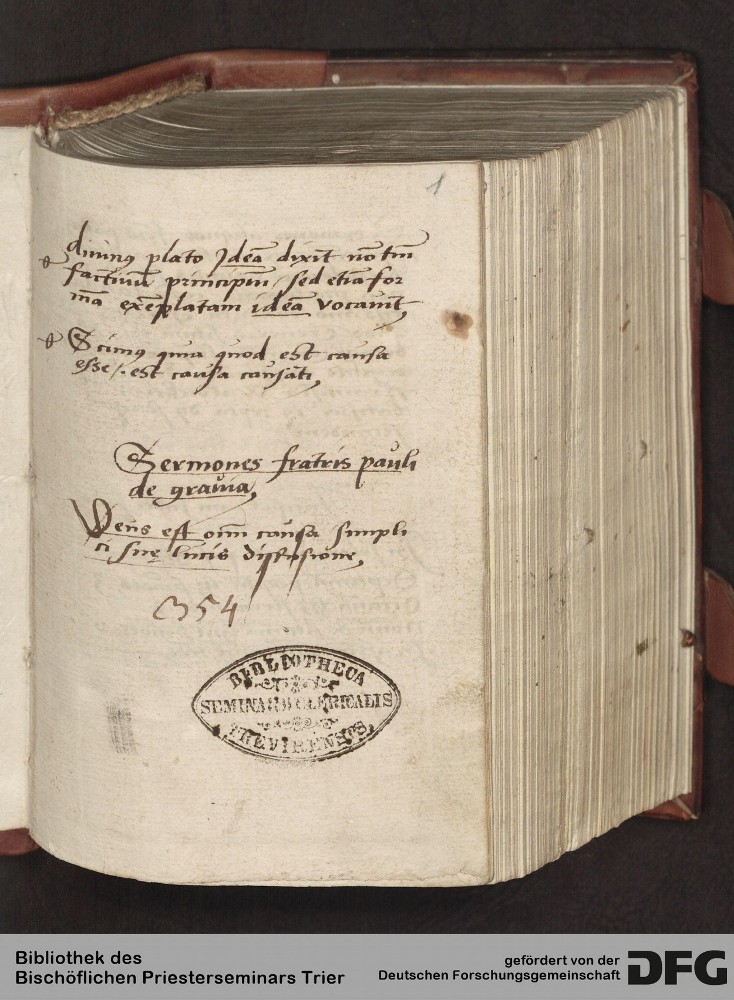 1
diuinus plato Ideā dixit nō tm̄
factiuū principiū, sed etiā for
mā exēplatam ideā vocauit,
Scimus quia quod est causa
esse / est causa causati,
Sermones fratris pauli
de grauia,
Deus est oīm causa simpli
ci suę lucis diffusione,
354
BIBLIOTHECA
SEMINARII CLERICALIS
TREVIRENSIS
Bibliothek des
Bischöflichen Priesterseminars Trier
gefördert von der
Deutschen Forschungsgemeinschaft
DFG